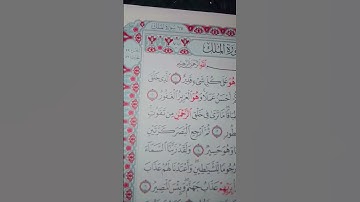 سُورَةُ المُلْكِ
وَهُوَ عَلَىٰ كُلِّ شَيْءٍ قَدِيرٌ ١ الَّذِي خَلَقَ
أَحْسَنُ عَمَلًا وَهُوَ الْعَزِيزُ الْغَفُورُ ٢
مَا تَرَىٰ فِي خَلْقِ الرَّحْمَٰنِ مِنْ تَفَاوُتٍ
فُطُورٍ ٣ ثُمَّ ارْجِعِ الْبَصَرَ كَرَّتَيْنِ
وَهُوَ حَسِيرٌ ٤ وَلَقَدْ زَيَّنَّا السَّمَاءَ
رُجُومًا لِلشَّيَاطِينِ وَأَعْتَدْنَا لَهُمْ عَذَابَ
بِرَبِّهِمْ عَذَابُ جَهَنَّمَ وَبِئْسَ الْمَصِيرُ